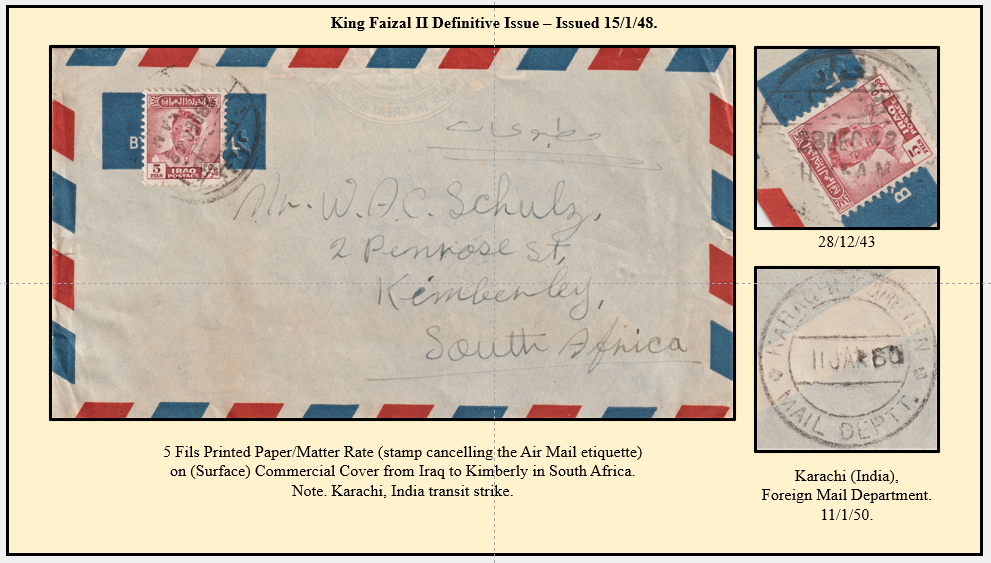 King Faizal II Definitive Issue – Issued 15/1/48.
BY
L
5 FILS
IRAQ
POSTAGE
مطبوعات
Mr. W.A.C. Schulz,
2 Penrose St,
Kimberley,
South Africa
5 FILS
IRAQ
POSTAGE
B
28/12/43
KARACHI FOREIGN
11 JAN 50
MAIL DEPTT.
5 Fils Printed Paper/Matter Rate (stamp cancelling the Air Mail etiquette)
on (Surface) Commercial Cover from Iraq to Kimberly in South Africa.
Note. Karachi, India transit strike.
Karachi (India),
Foreign Mail Department.
11/1/50.